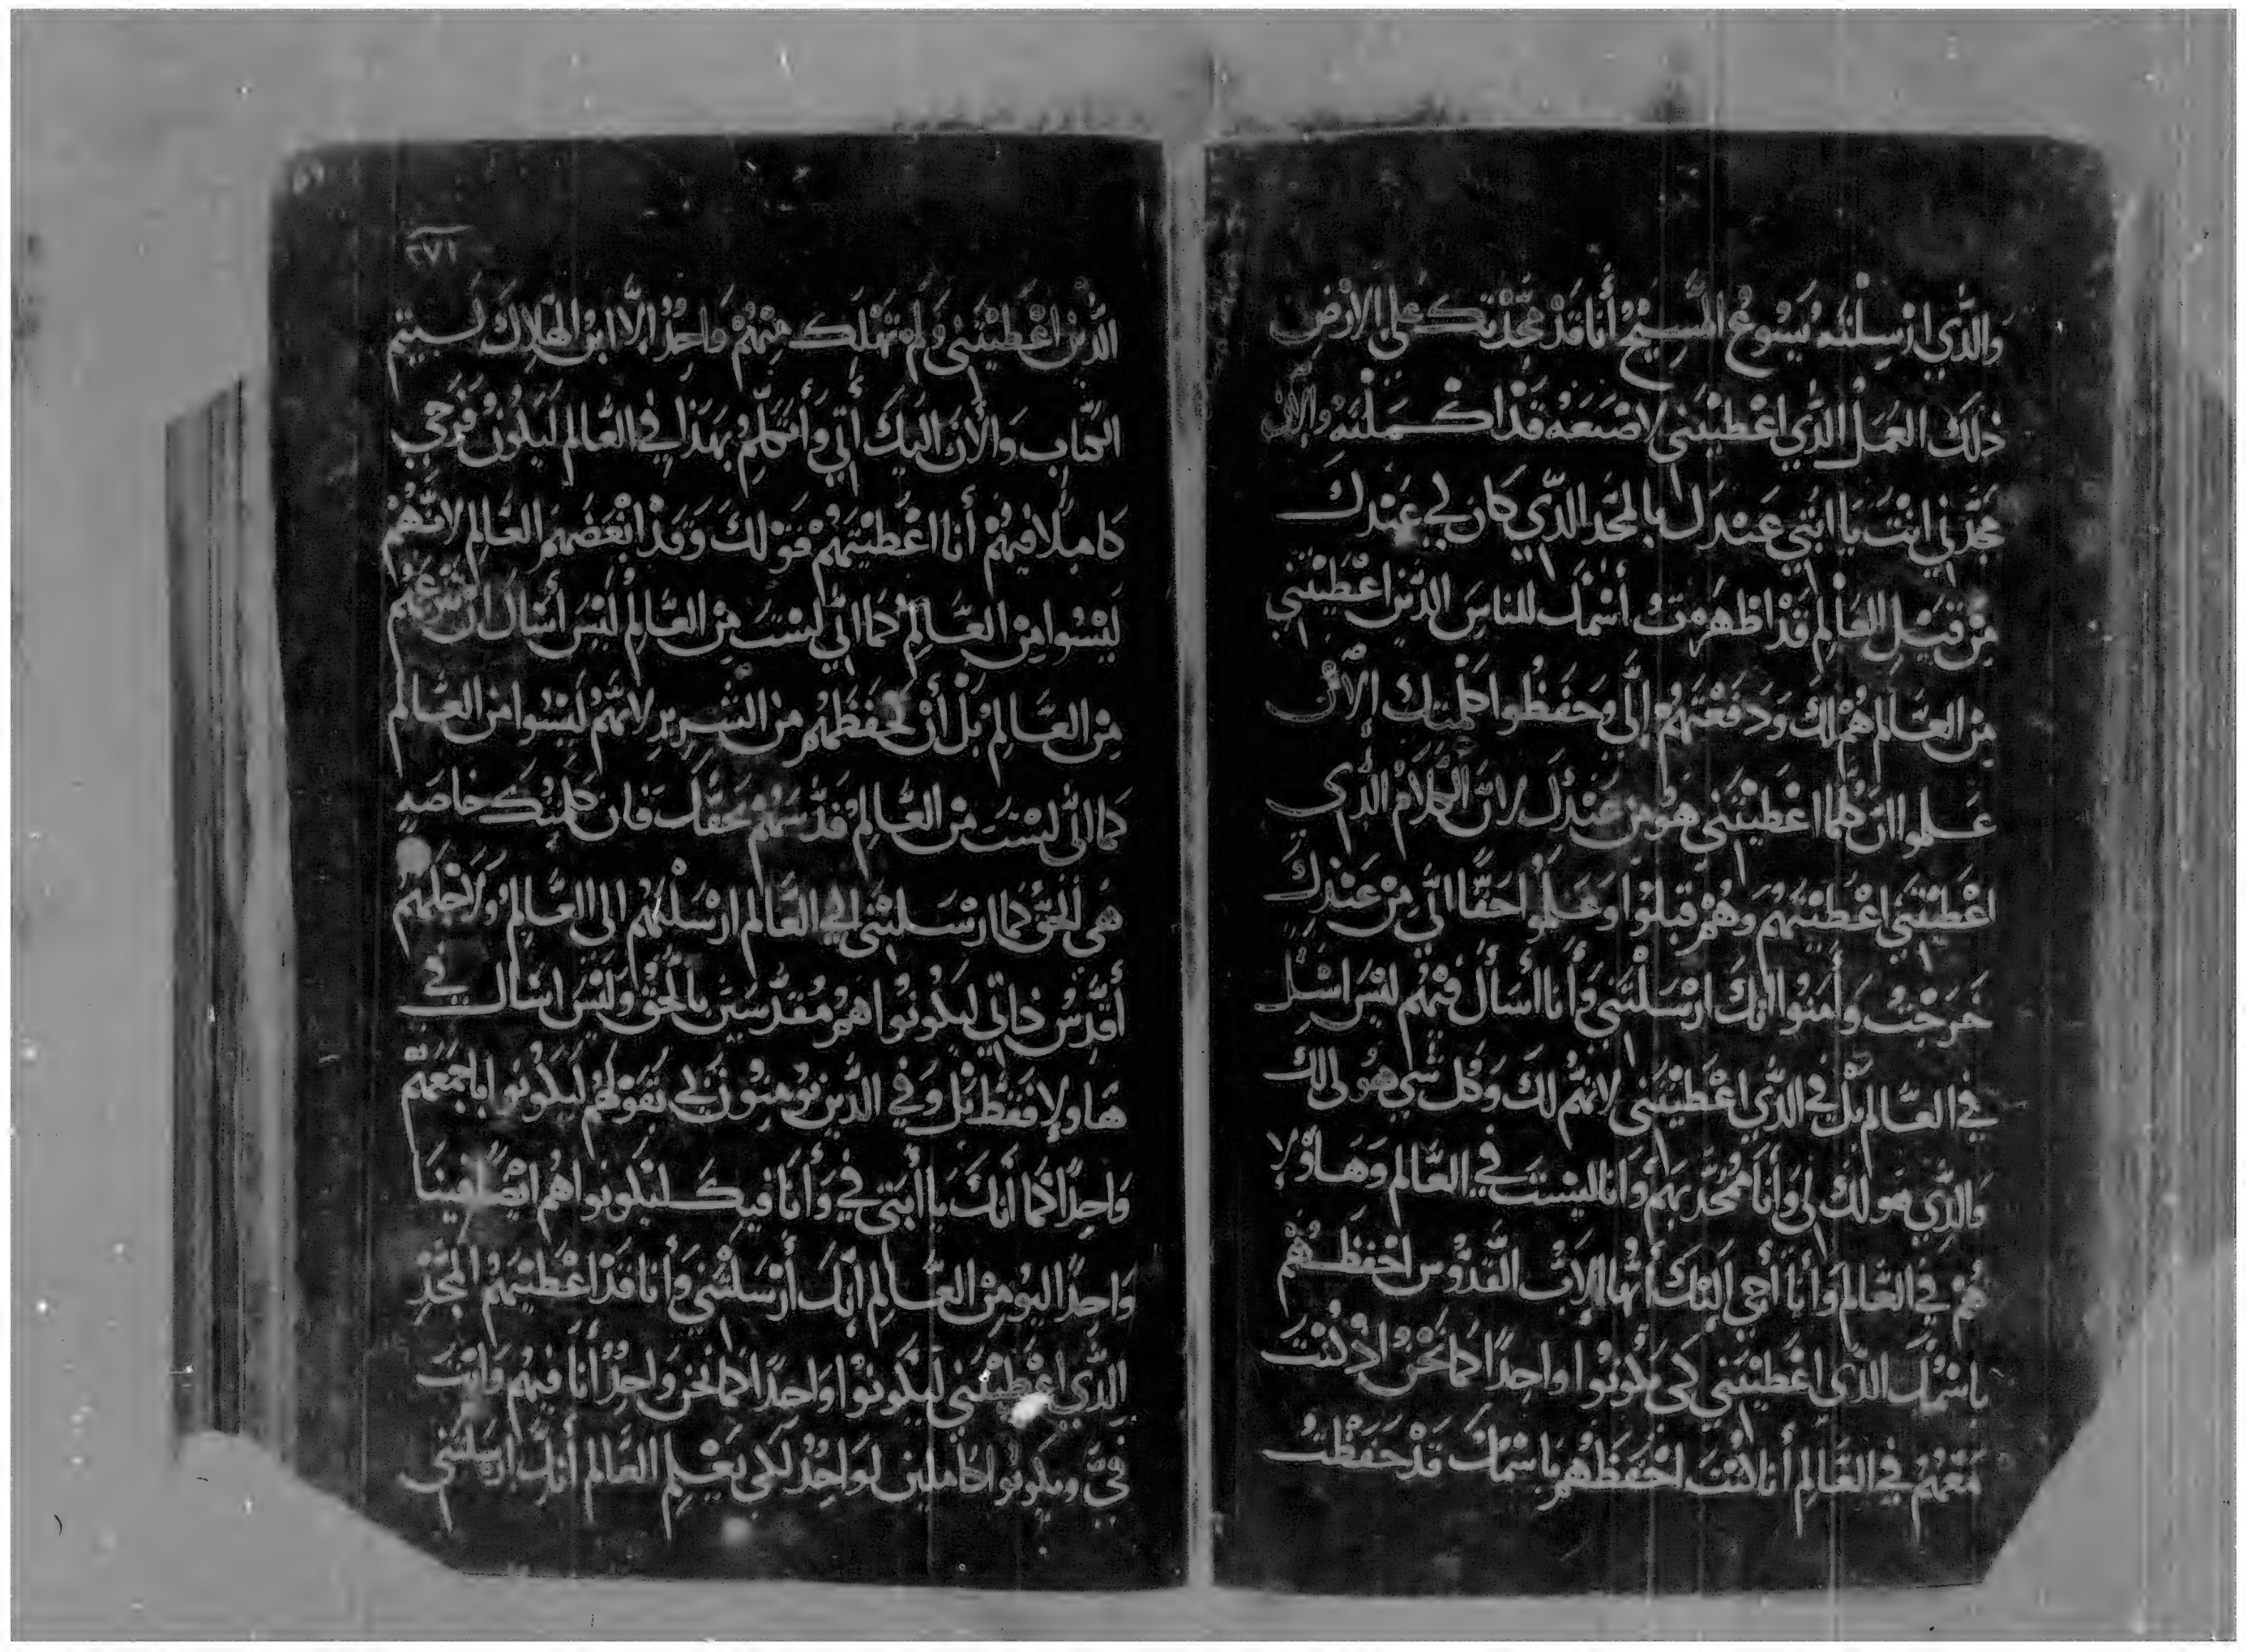 وَالَّذي ارْسِلْتَه يَسُوعُ المَسِيحُ أنا قَدْ مَجَّدْتِكَ عَلى الارْضِ
ذلَكَ العَمَلْ الَّذي اعْطَيْتَنى لاصْنَعَهْ قَدْ اكْمَلْتَه وَالآن
مَجّدْنِي انْتَ يَا ابَتي عَنِدَكَ بالمَجْدَ الذّي كَانَ لي عَنِدكَ
مِنْ قَبْلِ العَالمِ قَدْ اظهَرْتُ أسْمَكَ للنَاسِ الذَّين اعْطَيْتَني
مِن العَّالمِ هُمْ لكَ وَدَفَعْتَهُمْ إلىَّ وَحَفَظُوا كَلمتِكَ الآن
عَلموا انَّ كلّما اعْطَيْتَني هُوْ مِن عَنِدكَ لانَّ الكَلامَ الذّى
اعْطَيْتَنى اعْطَيْتَهُمْ وَهُمْ قَبلوُا وَعَلموُا حَقًّا انّي مِنْ عَنِدكَ
خَرَجْتُ وَأمَنوُا انَّكَ ارْسَلْتَنى وَأنا أسَأل فيْهُم ليْسَ اسْئل
في العَّالم بَلْ في الذَّي اعْطَيْتَنى لانَّهُم لكَ وَكُل شي هُو لى لكَ
وَالَّذِي هَو لكَ لى وَأنَا مُمَجَّد بَهِم وَأنا ليْسْتَ في العَّالم وَهَاؤلاِ
هُمْ في العَّالم وَأنا أَجي اليَكَ أيُّها الابُ القَدُّوس احْفَظْهُمْ
باسْمَكَ الذَّى اعْطَيْتَني كَى يكوُنوُا واحِدًا كَمَا نَحْنُ اذ كُنْتَ
مَعَهُمْ في العَّالمِ أنا كُنْتَ احْفَظْهُم باسْمَكَ قَدْ حَفَظْتُ
٢٧١
الذَّينْ اعْطَيْتَنى وَلَمْ تَهْلَكْ مِنْهُمْ وَاحِدُ إلاَّ ابنُ الهَلاِكَ لسيَتم
الكتاب وَالأنَ اليَكَ أتي وَأتَكَلّمُ بهَذا في العَّالم لَيَكُونُ فَرَحي
كاملا فيهُمْ أنا اعْطَيْتَهُمْ قَوْلكَ وَقَدْ ابْغَضَهُمْ العَّالم لانَّهُمْ
لَيْسُوا مِنْ العَّالمِ كَما انّي ليْسْتَ مِنْ العَّالمِ لَيْسَ أسَال انْ تنزعَهُم
مِنْ العَّالمِ بَلْ أنْ تحْفَظَهُم مِن الشِريرِ لانَّهُمْ لَيْسُوا مَن العَّالم
كما انّى ليْسْتَ مْن العَّالِم قَدّسَهُمْ بَحَقّكَ فان كلمتكَ خاصَةٍ
هَى الحَقّ كما ارْسَلتَنى الي العَّالم ارْسَلْتَهُم الى العَّالمِ وَلاجْلَهُمْ
أقَدِّسُ ذاتي ليَكونوا هُم مُقَدَّسَيَن بالحَقُّ وَليْسَ اسَال في
هَاولاِ فقَطْ بَل وَفي الذَّين يَؤمنوُنَ بي بَقَولهُمْ لَيَكوُنوا باجْمَعَهُمْ
وَاحِدًا كَمَا أنَكَ يا أبَتي فيَ وَأنَا فيكَ ليكوُنوا هُمْ ايْضًا فينَا
وَاحِدًا ليُؤمِنْ العَّالمِ انّكَ أرْسَلتَنى وَأنا قَدْ اعْطَيْتَهُمُ المَجْدِ
الذَّي اعْطَيْتَني ليَكُونوُا وَاحدًا كما نحَن وَاحِدٌ أنَا فيهُم وَانتَ
فيَّ ويكونوا كاملين لوَاحِدٌ لكى يَعْلِم العَّالم أنَكَ ارسَلتَنى